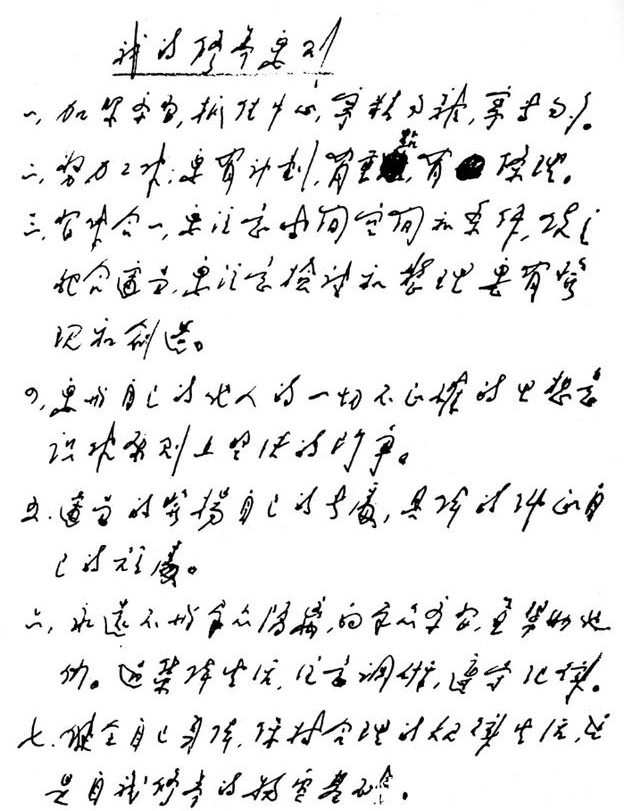 我的修养要则
一、加紧学习,抓住中心,宁精勿杂,宁专勿多。
二、努力工作,要有计划,有重点,有条理。
三、习作合一,要注意时间空间和条件,使之
配合适当,要注意检讨和整理,要有發
现和创造。
四、要与自己的他人的一切不正確的思想意
识作原则上坚决的斗争。
五、適当的發揚自己的长處,具体的纠正自
己的短處。
六、永远不与群众隔离,向群众学习,並帮助他
们。过集体生活,注意调研,遵守纪律。
七、健全自己身体,保持合理的规律生活,这
是自我修养的物质基础。